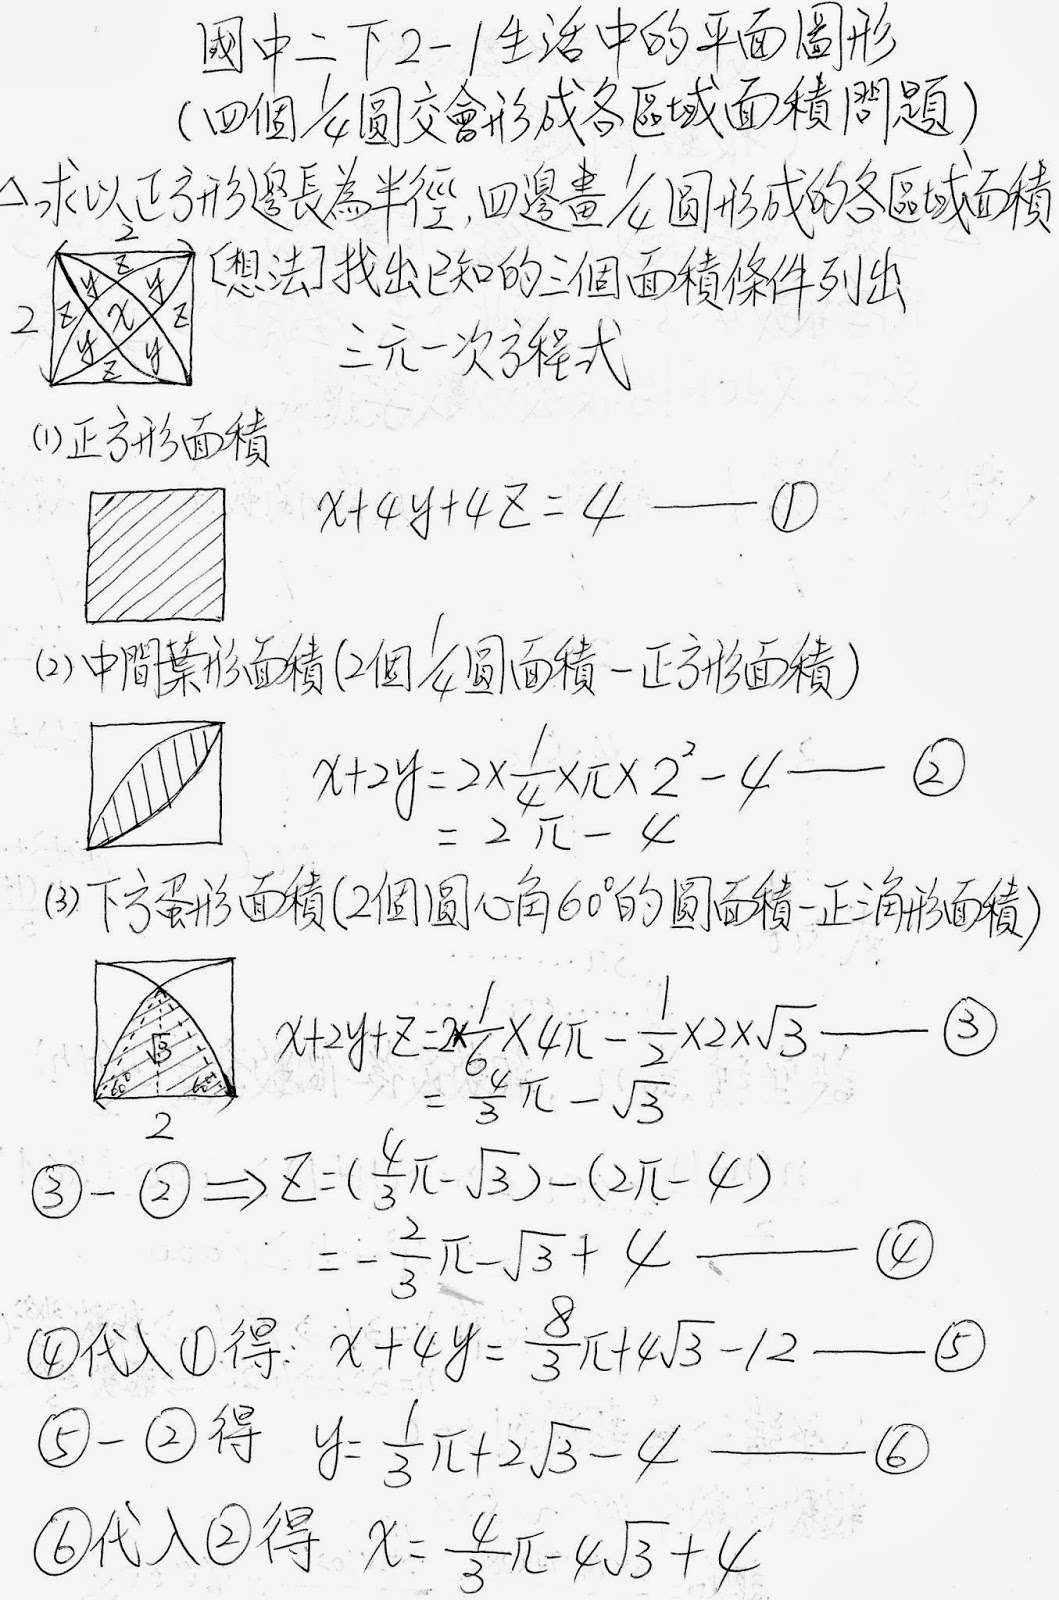 國中二下2-1生活中的平面圖形
(四個1/4圓交會形成各區域面積問題)
△求以正方形邊長為半徑,四邊畫1/4圓形成的各區域面積
2
2
z
y y
z x z
y y
z
[想法]找出已知的三個面積條件列出
三元一次方程式
(1)正方形面積
x+4y+4z=4 —— ①
(2)中間葉形面積(2個1/4圓面積-正方形面積)
x+2y=2×1/4×π×2²-4 —— ②
=2π-4
(3)下方蛋形面積(2個圓心角60°的圓面積-正三角形面積)
√3
60° 60°
2
x+2y+z=2×1/6×4π-1/2×2×√3 —— ③
=4/3π-√3
③-②⇒z=(4/3π-√3)-(2π-4)
=-2/3π-√3+4 —— ④
④代入①得: x+4y=8/3π+4√3-12 —— ⑤
⑤-②得 y=1/3π+2√3-4 —— ⑥
⑥代入②得 x=4/3π-4√3+4